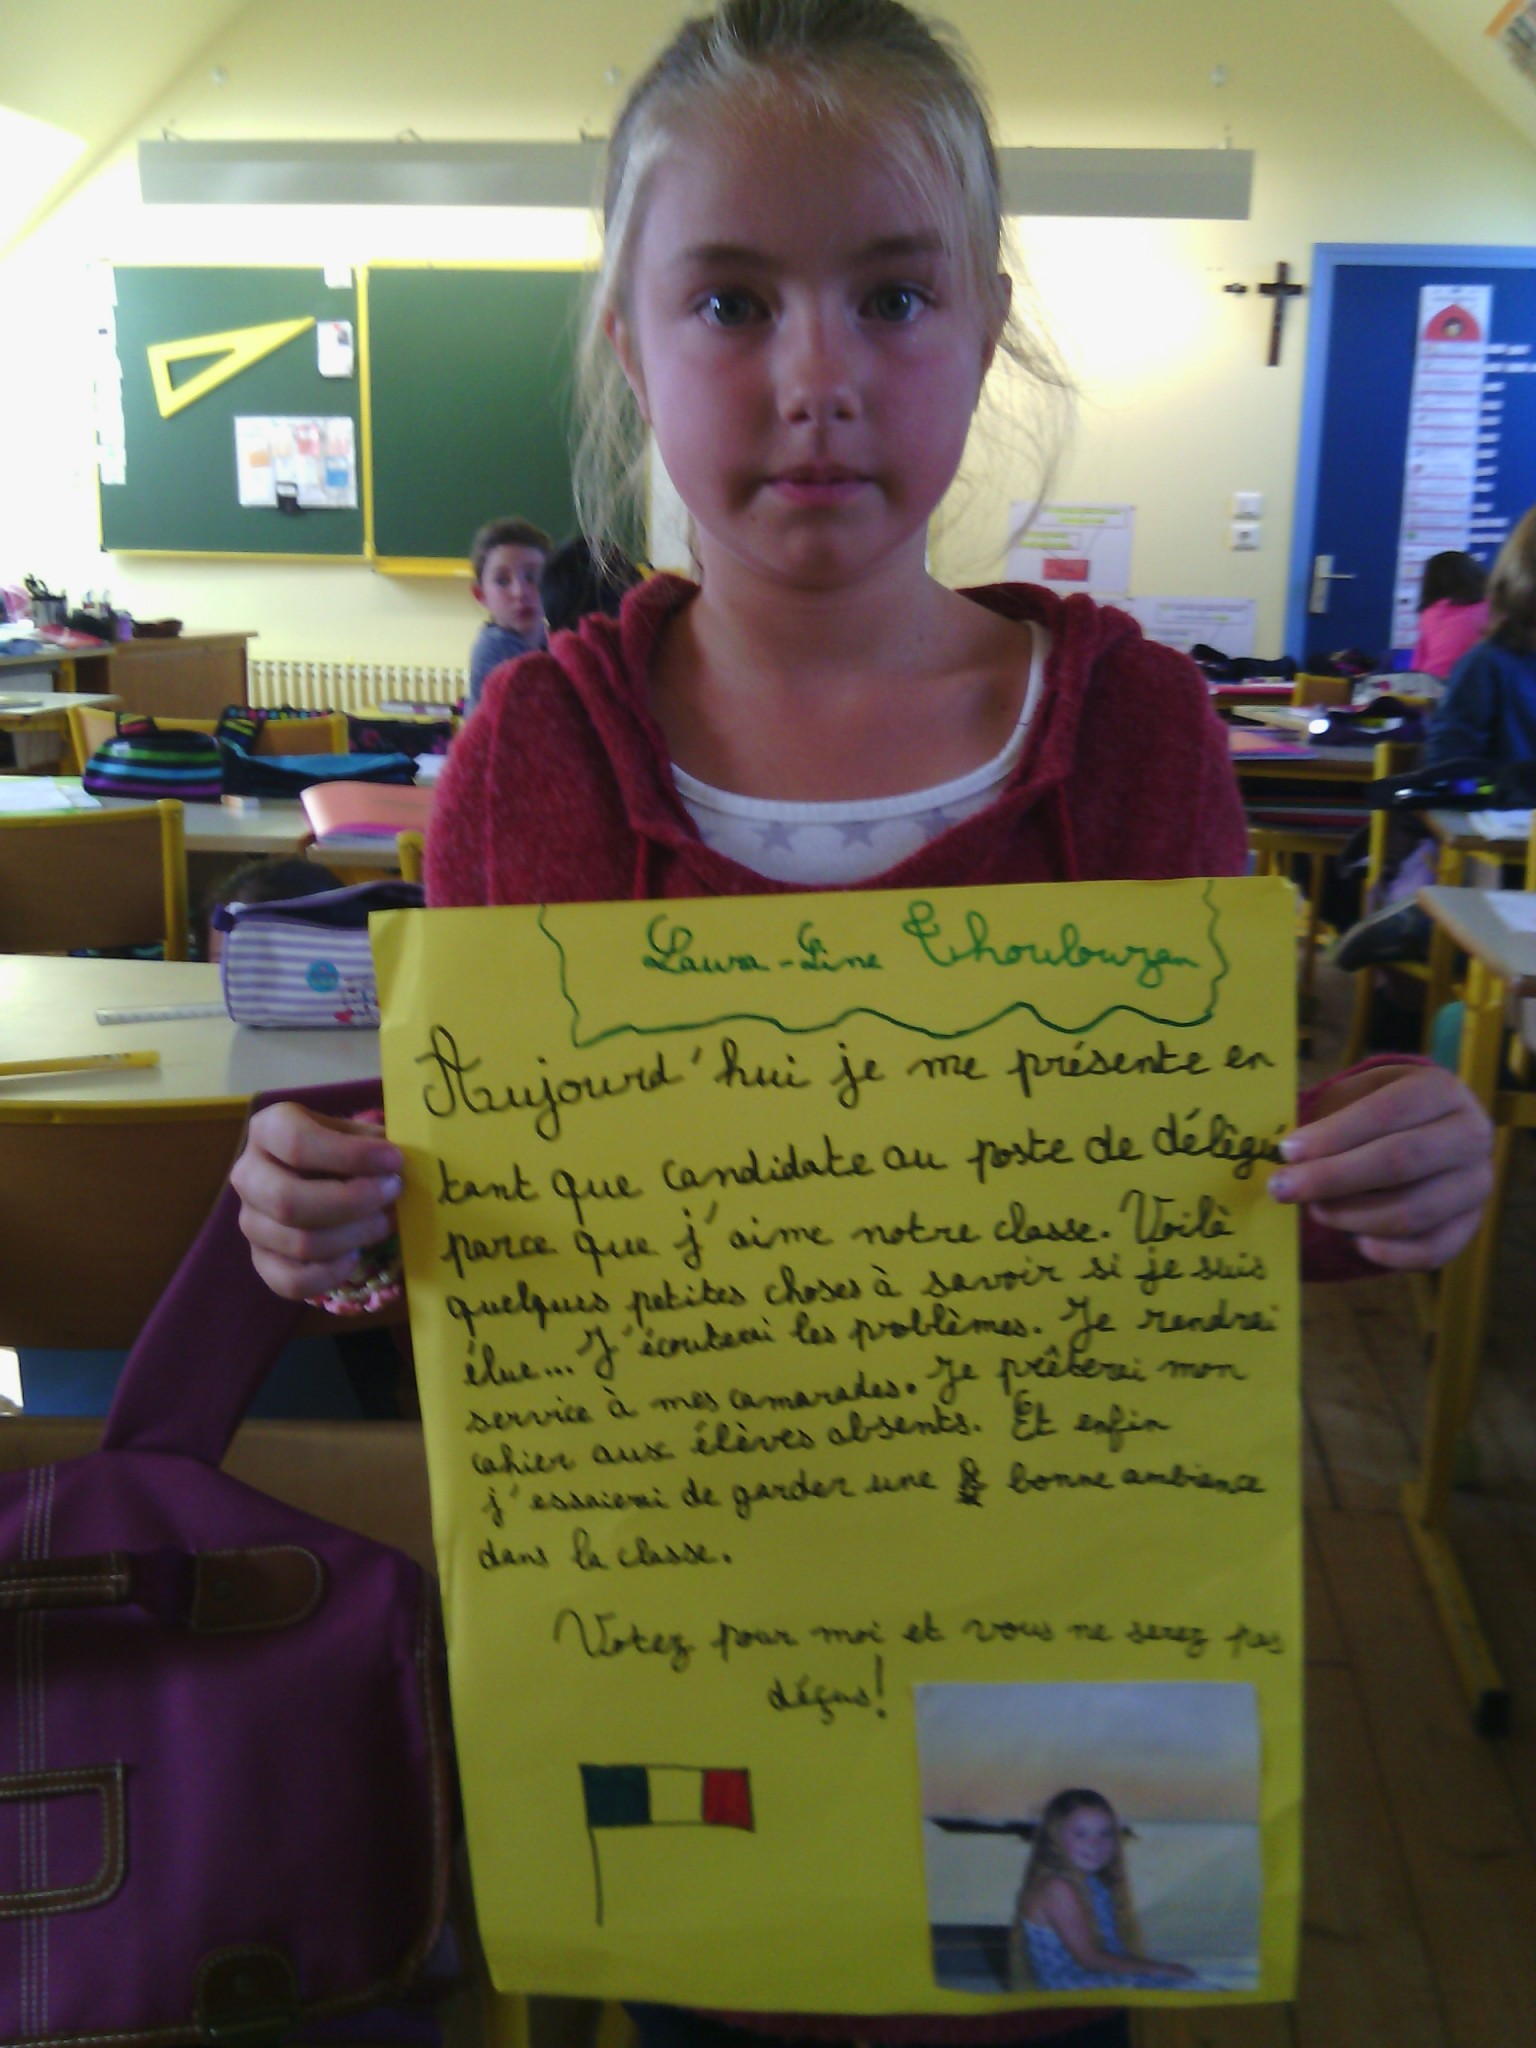 Laura-Line Thoulouzan
Aujourd'hui je me présente en
tant que candidate au poste de délégué
parce que j'aime notre classe. Voilà
quelques petites choses à savoir si je suis
élue... J'écouterai les problèmes. Je rendrai
service à mes camarades. Je prêterai mon
cahier aux élèves absents. Et enfin
j'essaierai de garder une bonne ambiance
dans la classe.
Votez pour moi et vous ne serez pas
déçus!